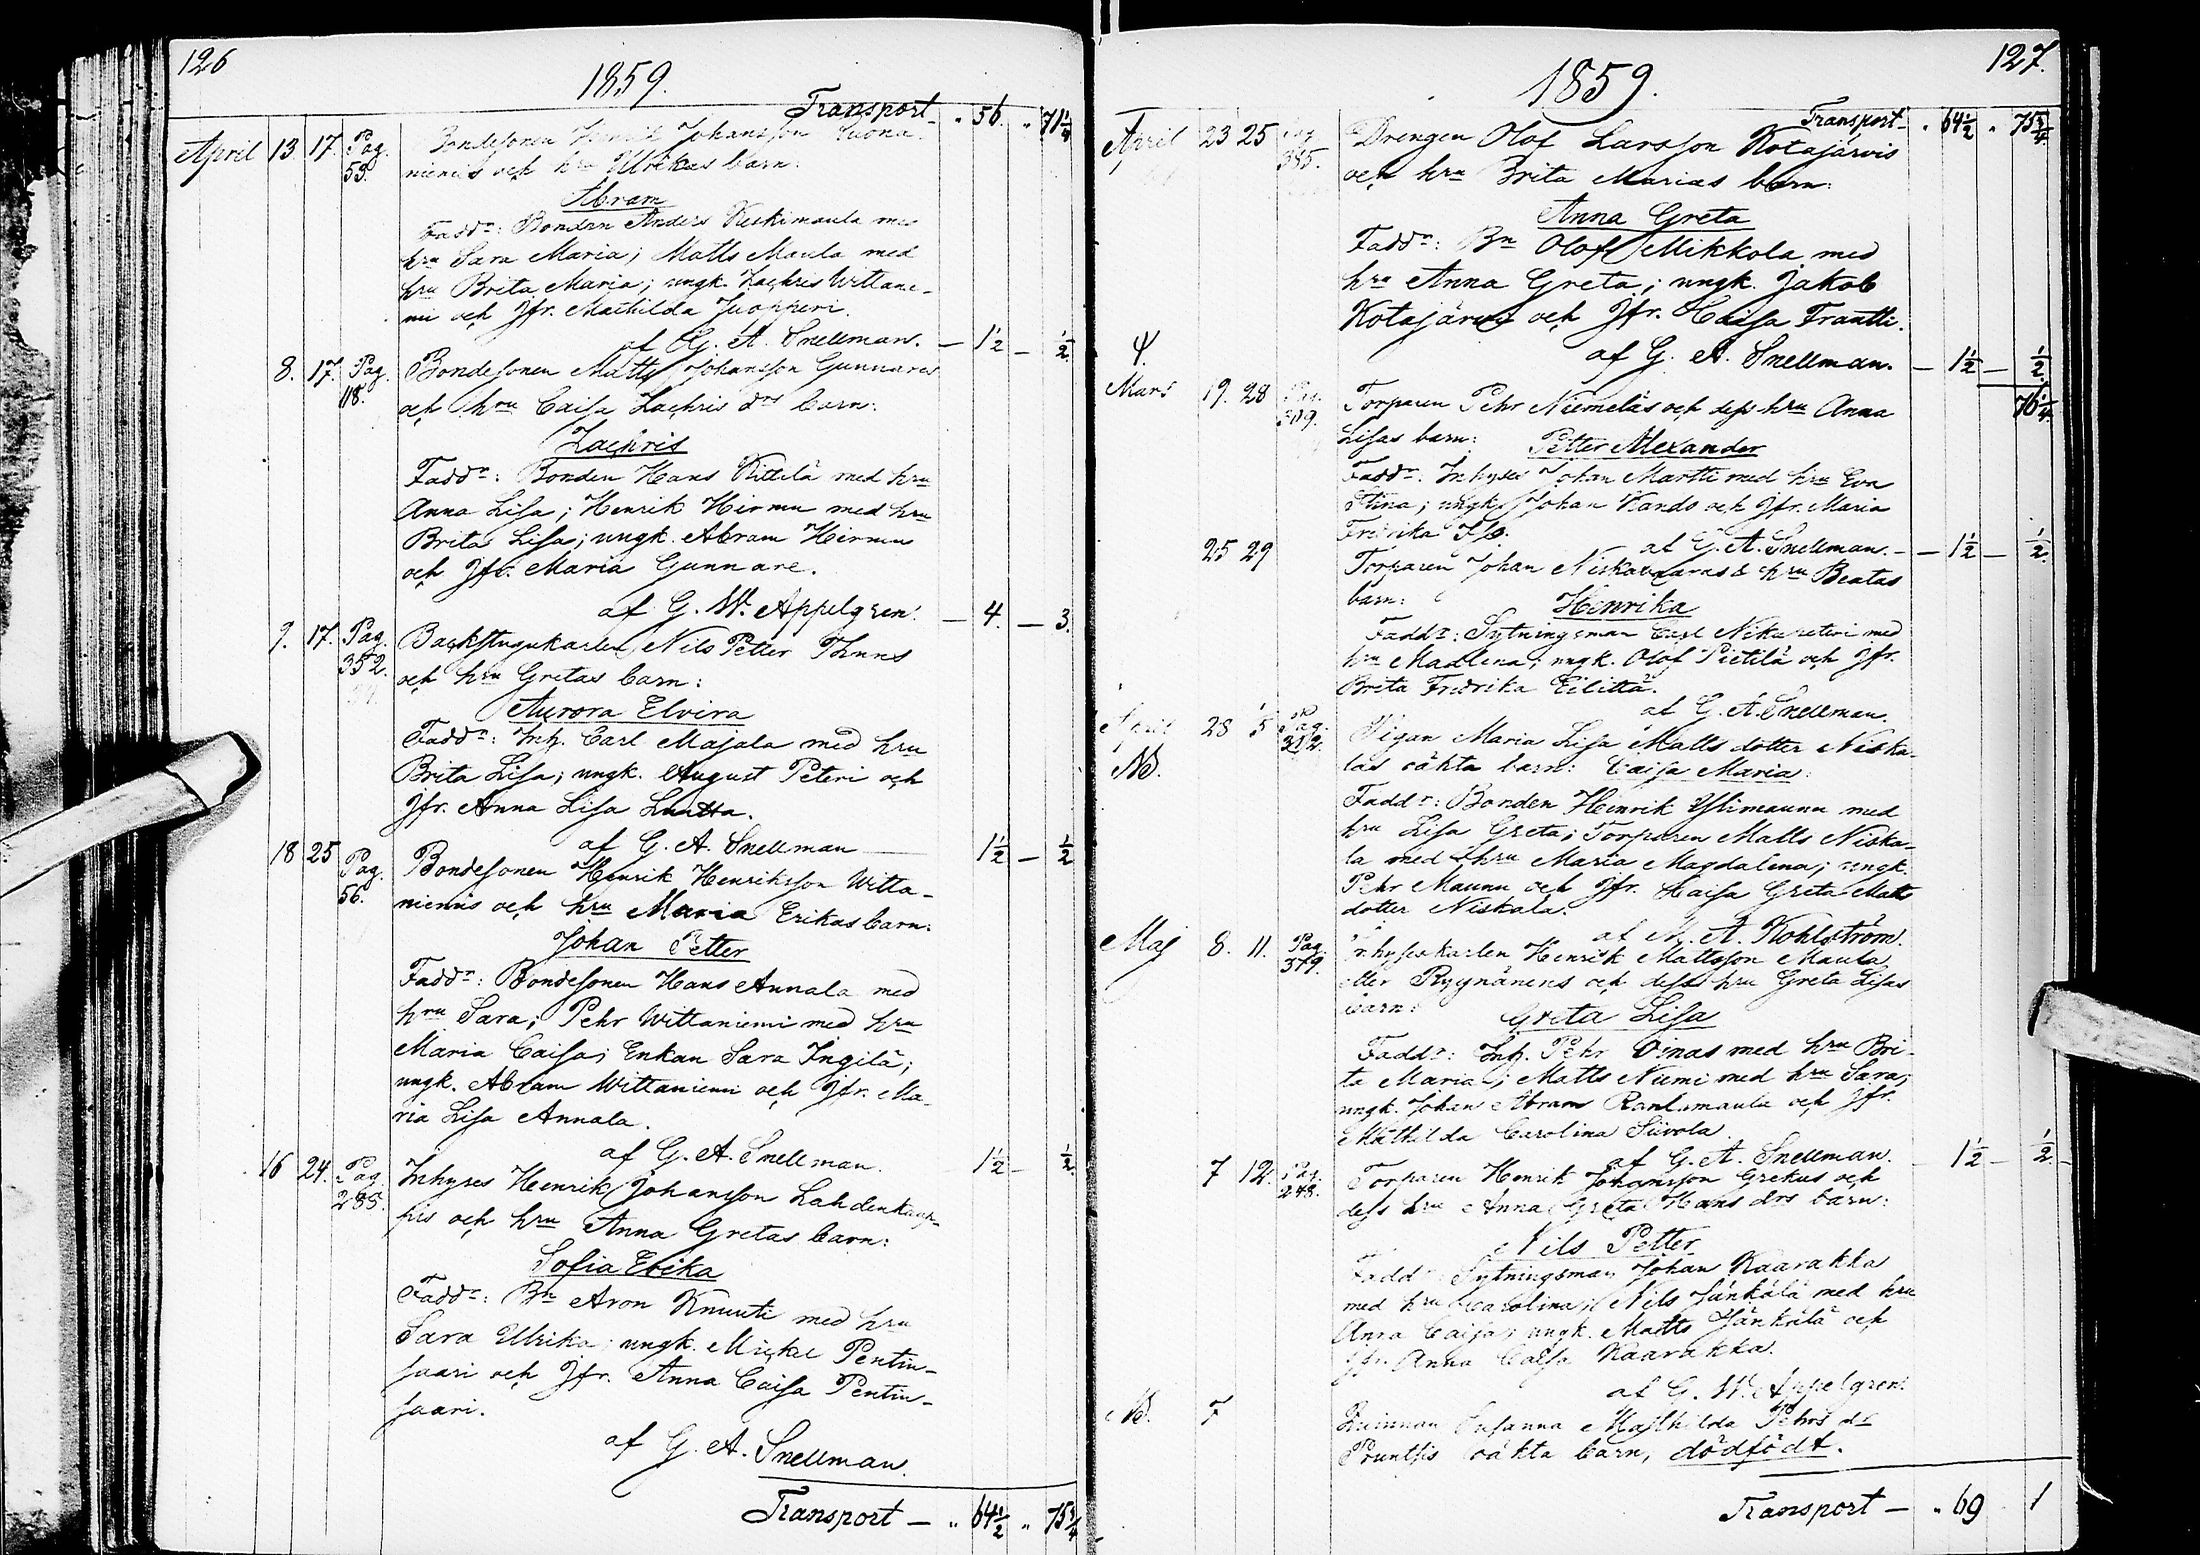 126
1859.
Transport - „ 56. „ 71 1/4
April 13. 17. Pag. 53. Bondesonen Henrik Johansson
niemis och hru Ulrikas barn:
Abram
Faddr: Bonden Anders Keskimaula med
hru Sara Maria; Matts Maula med
hru Brita Maria; ungk. Zachris Wittanie-
mi och Jfr. Mathilda Juopperi.
af G. A. Snellman. — 1 1/2 — 1/2
8. 17. Pag. 118. Bondesonen Matts Johansson Gunnares
och hru Caisa Zachris drs barn:
Zachris
Faddr: Bonden Hans Kittilä med hru
Anna Lisa; Henrik Hirmu med hru
Brita Lisa; ungk. Abram Hirmu
och Jfr. Maria Gunnare.
af G. W. Appelgren. — 4. — 3.
9. 17. Pag. 352. Backstugukarlen Nils Petter Thuns
och hru Gretas barn:
Aurora Elvira
Faddr: Inh. Carl Majala med hru
Brita Lisa; ungk. August Peteri och
Jfr. Anna Lisa Luotta.
af G. A. Snellman — 1 1/2 — 1/2
18 25 Pag. 56. Bondesonen Henrik Henriksson Witta-
niemis och hru Maria Erikas barn:
Johan Petter
Faddr: Bondesonen Hans Annala med
hru Sara; Pehr Wittaniemi med hru
Maria Caisa; Enkan Sara Ingilä;
ungk. Abram Wittaniemi och Jfr. Ma-
ria Lisa Annala.
af G. A. Snellman. 1 1/2 — 1/2
16 24. Pag. 285. Inhyses Henrik Johansson Lahdenkaup-
pis och hru Anna Gretas barn:
Sofia Erika
Faddr: Bn Aron Knuuti med hru
Sara Ulrika; ungk. Mickel Pentin-
saari och Jfr. Anna Caisa Pentin-
saari.
af G. A. Snellman.
Transport — „ 64 1/2 „ 75 3/4
127.
1859.
Transport - „ 64 1/2 „ 75 3/4
April 23 25 Pag. 385. Drengen Olof Larsson Kotajärvis
och hru Brita Marias barn:
Anna Greta
Faddr: Bn Olof Mikkola med
hru Anna Greta; ungk. Jakob
Kotajärvi och Jfr. Caisa Frantti.
af G. A. Snellman. — 1 1/2 — 1/2
76 1/4
Mars 19. 28 Pag. 309. Torparen Pehr Niemeläs och dess hru Anna
Lisas barn: Petter Alexander
Faddr: Inhyses Johan Martti med hru Eva
Stina; ungk. Johan Kands och Jfr. Maria
Fredrika
af G. A. Snellman. — 1 1/2 — 1/2
25 29 Torparen Johan Niskavaaras & hru Beatas
barn: Henrika
Faddr: Sytningsman Carl Nikupeteri med
hru Madlena; ungk. Olof Pietilä och Jfr.
Brita Fredrika Eilittä.
af G. A. Snellman.
April 28 1/5 Pag. 312. Pigan Maria Lisa Matts dotter Niska-
NB. las oäkta barn: Caisa Maria:
Faddr: Bonden Henrik Ylimaunu med
hru Lisa Greta; Torparen Matts Niska-
la med hru Maria Magdalena; ungk.
Pehr Maunu och Jfr. Caisa Greta Matts
dotter Niskala.
af M. A. Kohlström.
Maj 8. 11. Pag. 379. Inhyseskarlen Henrik Mattsson Maula
eller Ryynänens och dess hru Greta Lisas
barn: Greta Lisa
Faddr: Inh. Pehr Oinas med hru Bri-
ta Maria; Matts Niemi med hru Sara;
ungk. Johan Abram Rantamaula och Jfr.
Mathilda Carolina Siivola
af G. A. Snellman. — 1 1/2 — 1/2
7 12. Pag. 248. Torparen Henrik Johansson Grekus och
dess hru Anna Greta Hans drs barn:
Nils Petter
Faddr: Sytningsman Johan Kaarakka
med hru Carolina; Nils Jänkälä med hru
Anna Caisa; ungk. Matts Jänkälä och
Jfr. Anna Caisa Kaarakka.
af G. W. Appelgren.
NB. 7 Quinnan Susanna Mathilda Pehrs dr
oäkta barn, dödfödt.
Transport — „ 69 „ 1